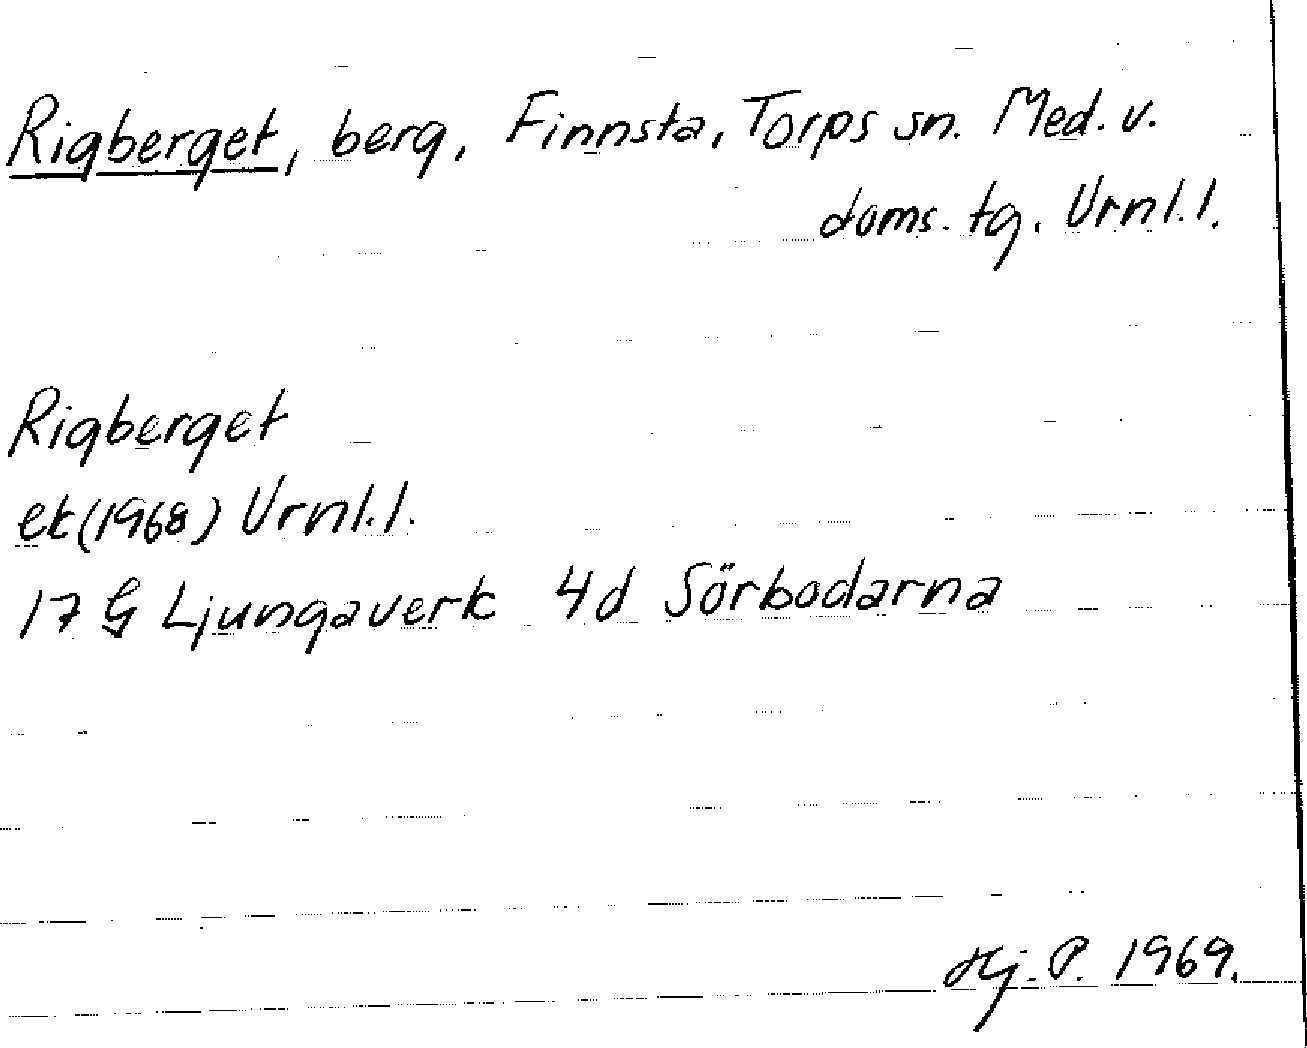 Rigberget, berg, Finnsta, Torps sn. Med. v.
doms. tg. Vrnl.l.
Rigberget
ek (1968) Vrnl.l.
17 G Ljungaverk 4d Sörbodarna
Hj. P. 1969.